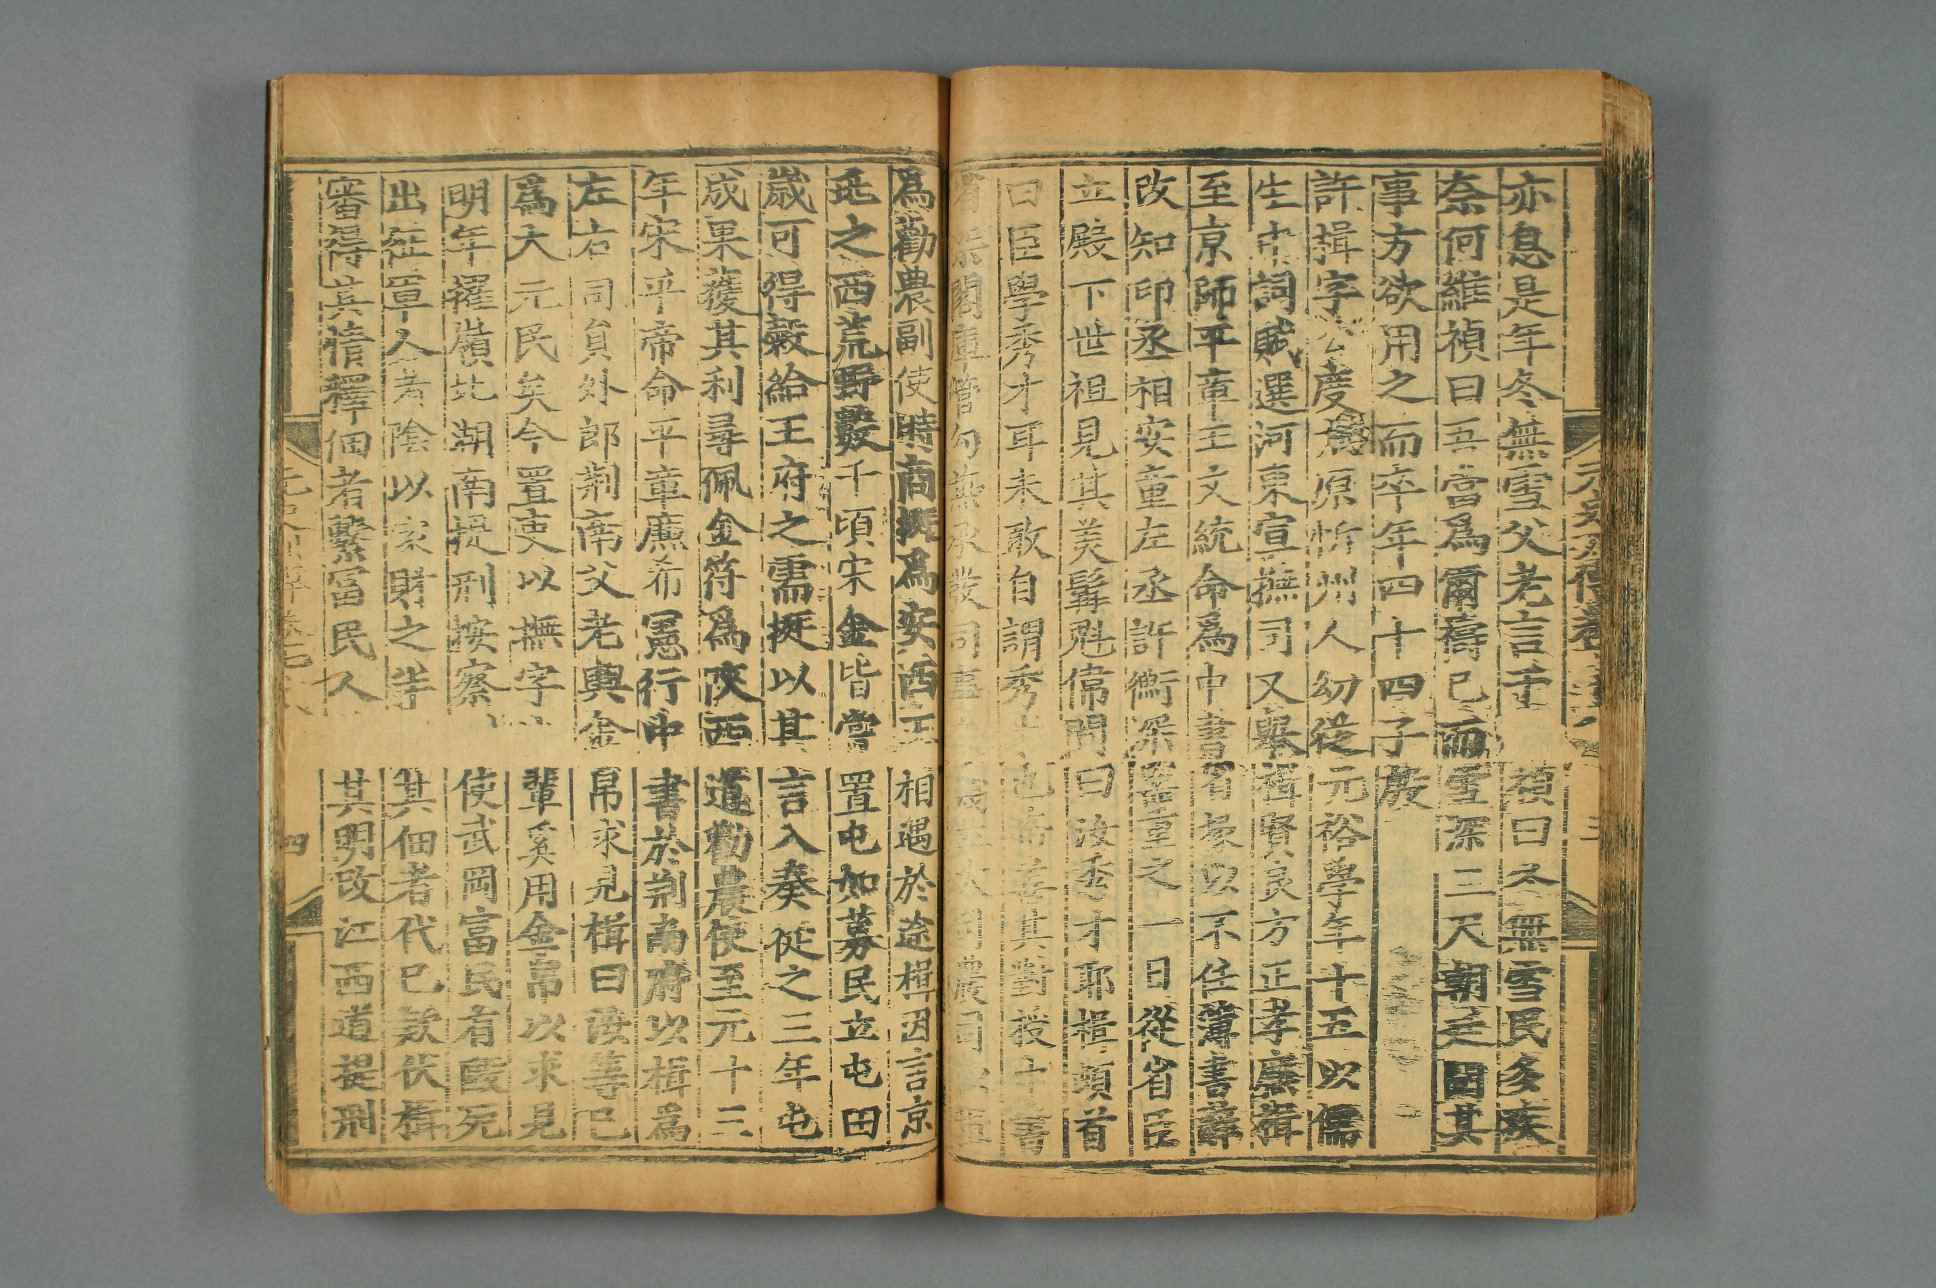 元史列傳卷七十八 三
亦息是年冬無雪父老言于禎曰冬無雪民多疾
奈何維禎曰吾當爲爾禱已而雪深三尺朝廷聞其
事方欲用之而卒年四十四子殷
許楫字公度太原忻州人幼從元裕學年十五以儒
生中詞賦選河東宣撫司又舉楫賢良方正孝廉楫
至京師平章王文統命爲中書省掾以不任簿書辭
改知印丞相安童左丞許衡深器重之一日從省臣
立殿下世祖見其美髯魁偉問曰汝秀才耶楫頓首
曰臣學秀才耳未敢自謂秀才也帝善其對授中書
省架閣庫管勾兼承發司事大司農司以楫
爲勸農副使時商挺爲安西王相遇於途楫因言京
兆之西荒野數千頃宋金皆嘗置屯如募民立屯田
歲可得穀給王府之需挺以其言入奏從之三年屯
成果獲其利尋佩金符爲陝西道勸農使至元十三
年宋平帝命平章廉希憲行中書於荆南府以楫爲
左右司員外郎荆南父老輿金帛求見楫曰汝等已
爲大元民矣今置吏以撫字輩奚用金帛以求見
明年擢嶺北湖南提刑按察使武岡富民有毆死
出征軍人者陰以家財之半其佃者代已款伏楫
審得其情釋佃者繫富民人其明改江西道提刑
元史列傳卷七十八 四